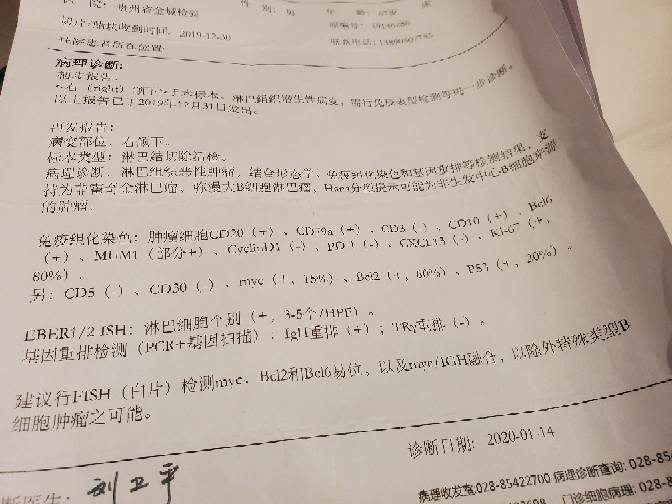 院：贵州省金域检验 性 别：男 年 龄：67岁 床
切片/蜡块收到时间：2019-12-30
联系电话：
病理诊断：
初步报告：
右（right）颌下手术标本：淋巴组织增生性病变，需行免疫表型检测等进一步诊断。
以上报告已于2019年12月31日发出。
再发报告：
病变部位：右颌下。
标本类型：淋巴结切除活检。
病理诊断：淋巴组织恶性肿瘤，结合形态学、免疫组化染色和基因重排等检测结果，支
持为非霍奇金淋巴瘤，弥漫大B细胞淋巴瘤，Hans分型提示可能为非生发中心B细胞来源
的肿瘤。
免疫组化染色：肿瘤细胞CD20（+）、CD79a（+）、CD3（-）、CD10（+）、Bcl6
（+）、MUM1（部分+）、CyclinD1（-）、PD-1（-）、CXCL13（-）、Ki-67（+，
80%）。
另：CD5（-）、CD30（-）、myc（+，15%）、Bcl2（+，80%）、P53（+，20%）。
EBER1/2-ISH：淋巴细胞个别（+，3-5个/HPF）。
基因重排检测（PCR+基因扫描）：IgH重排（+）；TRγ重排（-）。
建议行FISH（白片）检测myc、Bcl2和Bcl6易位，以及myc/IGH融合，以除外特殊类型B
细胞肿瘤之可能。
诊断日期：2020-01-14
断医生：刘卫平
病理收发室:028-85422700 病理诊断查询: 028-85
门诊细胞病理: 028-